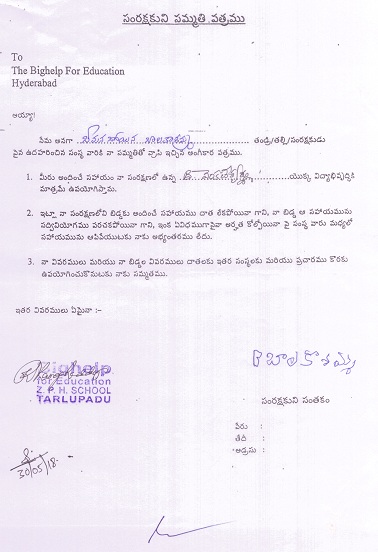 సంరక్షకుని సమ్మతి పత్రము
To
The Bighelp For Education
Hyderabad
అయ్యా!
నేను అనగా తండ్రి/తల్లి/సంరక్షకుడు
పైన ఉదహరించిన సంస్థ వారికి నా సమ్మతితో వ్రాసి ఇచ్చిన అంగీకార పత్రము.
1. మీరు అందించే సహాయం నా సంరక్షణలో ఉన్న యొక్క విద్యాభివృద్ధికి
మాత్రమే ఉపయోగిస్తాను.
2. ఇట్లా నా సంరక్షణలోని బిడ్డకు అందించే సహాయము దాత లేకపోయినా గాని, నా బిడ్డ ఆ సహాయమును
సద్వినియోగము పరచకపోయినా గాని, ఇంక ఏవిధముగానైనా అర్హత కోల్పోయినా పై సంస్థ వారు మధ్యలో
సహాయమును ఆపివేయుటకు నాకు అభ్యంతరము లేదు.
3. నా వివరములు మరియు నా బిడ్డల వివరములు దాతలకు ఇతర సంస్థలకు మరియు ప్రచారము కొరకు
ఉపయోగించుకొనుటకు నాకు సమ్మతము.
ఇతర వివరములు ఏమైనా :-
Bighelp
for Education
Z. P. H. SCHOOL
TARLUPADU
B బాలకొటమ్మ
సంరక్షకుని సంతకం
పేరు :
తేదీ :
అడ్రసు :
30/05/18